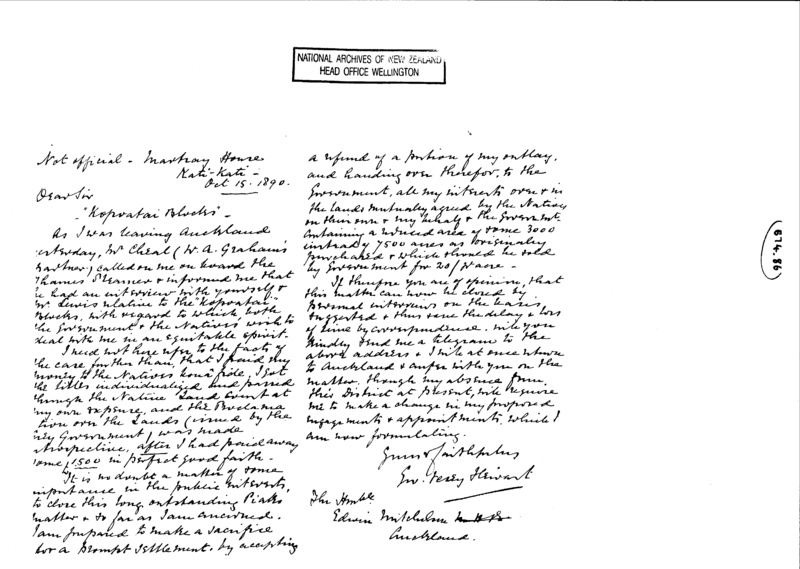 NATIONAL ARCHIVES OF NEW ZEALAND
HEAD OFFICE WELLINGTON
Not official - Martray House
Kati-Kati -
Oct 15. 1890.
Dear Sir
"Kopuatai Blocks" -
As I was leaving Auckland
yesterday, Mr Cheal (W. A. Graham's
partner) called on me on board the
Thames Steamer & informed me that
he had an interview with yourself &
Mr. Lewis relative to the "Kopuatai"
Blocks, with regard to which, both
the Government & the Natives wish to
deal with me in an equitable spirit.
I need not here refer to the facts of
the case further than, that I paid my
money to the Natives bonâ fide, I got
the titles individualized and passed
through the Native Land Court at
my own expense, and the Proclama
tion over the Lands (issued by the
Grey Government) was made
retrospective, after I had paid away
some 1500 in perfect good faith -
It is no doubt a matter of some
importance in the public interests,
to close this long outstanding Piako
matter & so far as I am concerned,
I am prepared to make a sacrifice
for a prompt settlement, by accepting
a refund of a portion of my outlay,
and handing over therefor, to the
Government, all my interests over & in
the lands mutually agreed by the Natives
on their own & my behalf & the Government
containing a reduced area of some 3000
instead of 7500 acres as originally
purchased & which should be sold
by Government for 20/ acre -
If therefore you are of opinion, that
this matter can now be closed by
personal interviews on the basis
suggested & thus save the delay & loss
of time by correspondence, will you
kindly send me a telegram to the
above address & I will at once return
to Auckland & confer with you on the
matter, though my absence from
this District at present, will require
me to make a change in my proposed
engagements & appointments, which I
am now formulating.
Yours faithfully
Geo. Vesey Stewart
The Honble
Edwin Mitchelson
Auckland.
674.86